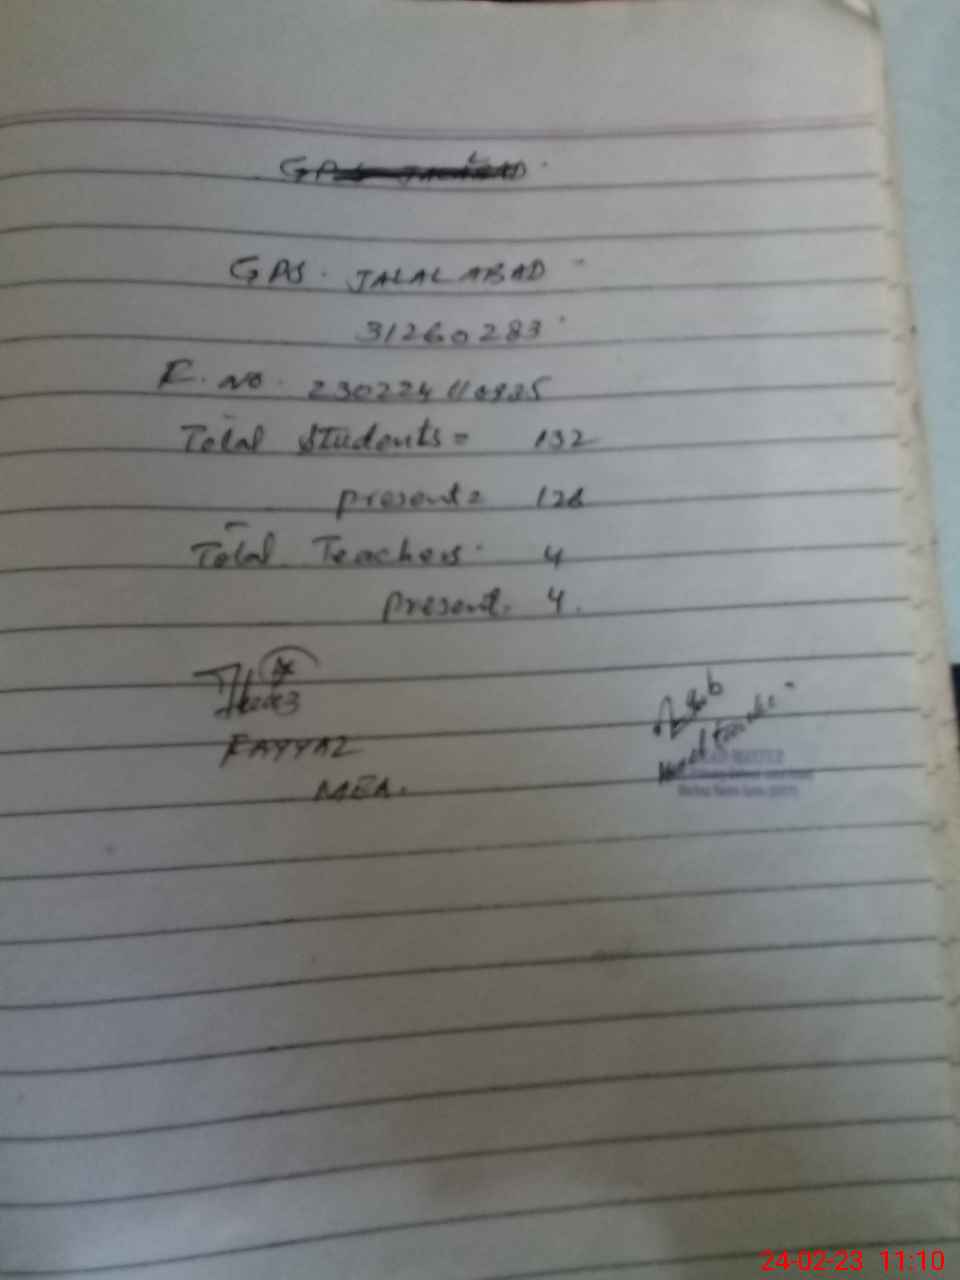 GPS JALALABAD
GPS. JALALABAD
31260283
R. No. 230224110935
Total Students = 132
present = 126
Total Teachers. 4
present. 4.
FAYYAZ
MEA.
HEAD MASTER
24-02-23 11:10